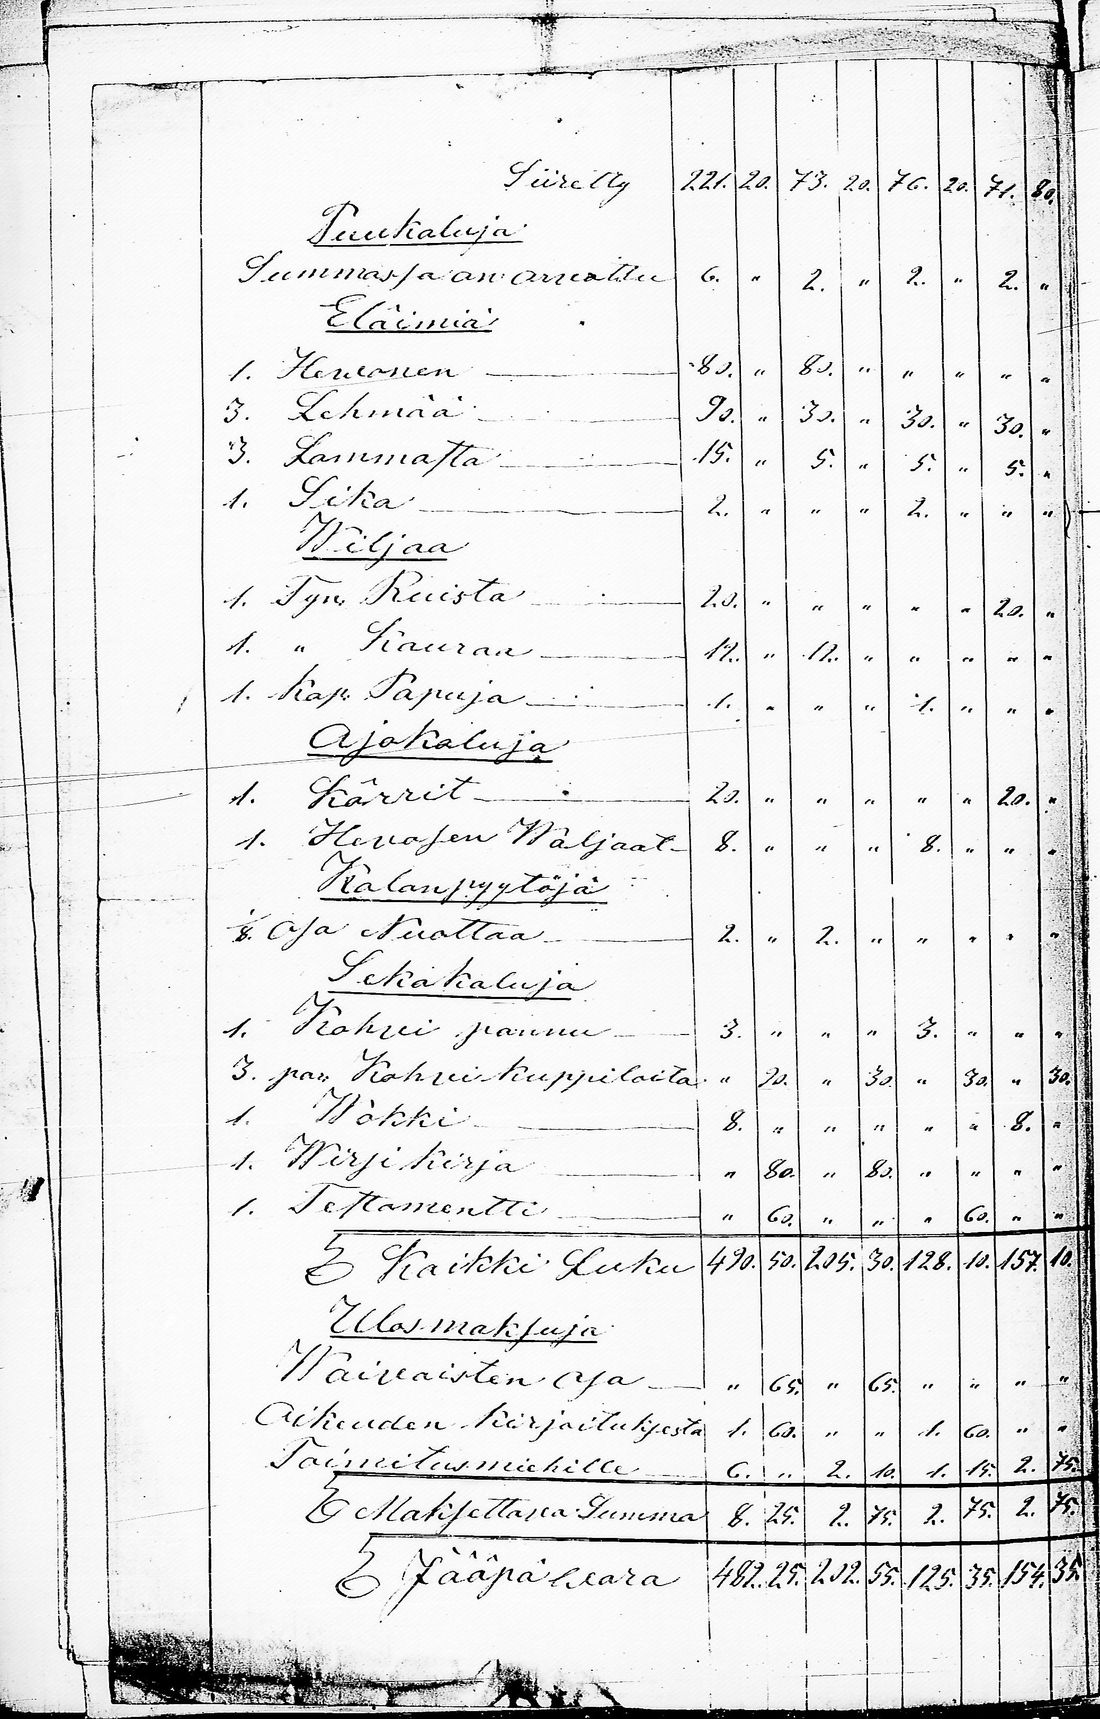 Siiretty 221. 20. 73. 20. 76. 20. 71. 80.
Puukaluja
Summassa on arvattu 6. " 2. " 2. " 2. "
Eläimiä
1. Hevonen 80. " 80. " " " " "
3. Lehmää 90. " 30. " 30. " 30. "
3. Lammasta 15. " 5. " 5. " 5. "
1. Sika 2. " " " 2. " " "
Wiljaa
1. Tyn. Ruista 20. " " " " " 20. "
1. " Kauraa 12. " 12. " " " " "
1. Kap. Papuja 1. " " " 1. " " "
Ajokaluja
1. Kärrit 20. " " " " " 20. "
1. Hevosen Wäljaat 8. " " " 8. " " "
Kalanpyytöjä
1/8. osa Nuottaa 2. " 2. " " " " "
Sekakaluja
1. Kohvi pannu 3. " " " 3. " " "
3. par. Kohvi kuppiloita " 90. " 30. " 30. " 30.
1. Wokki 8. " " " " " 8. "
1. Wirsi kirja " 80. " 80. " " " "
1. Testamentti " 60. " " " 60. " "
Kaikki Luku 490. 50. 205. 30. 128. 10. 157. 10.
Ulosmaksuja
Waivaisten osa " 65. " 65. " " " "
Oikeuden kirjoituksesta 1. 60. " " 1. 60. " "
Toimitusmiehille 6. " 2. 10. 1. 15. 2. 75.
Maksettava Summa 8. 25. 2. 75. 2. 75. 2. 75.
Jääpä wara 482. 25. 202. 55. 125. 35. 154. 35.